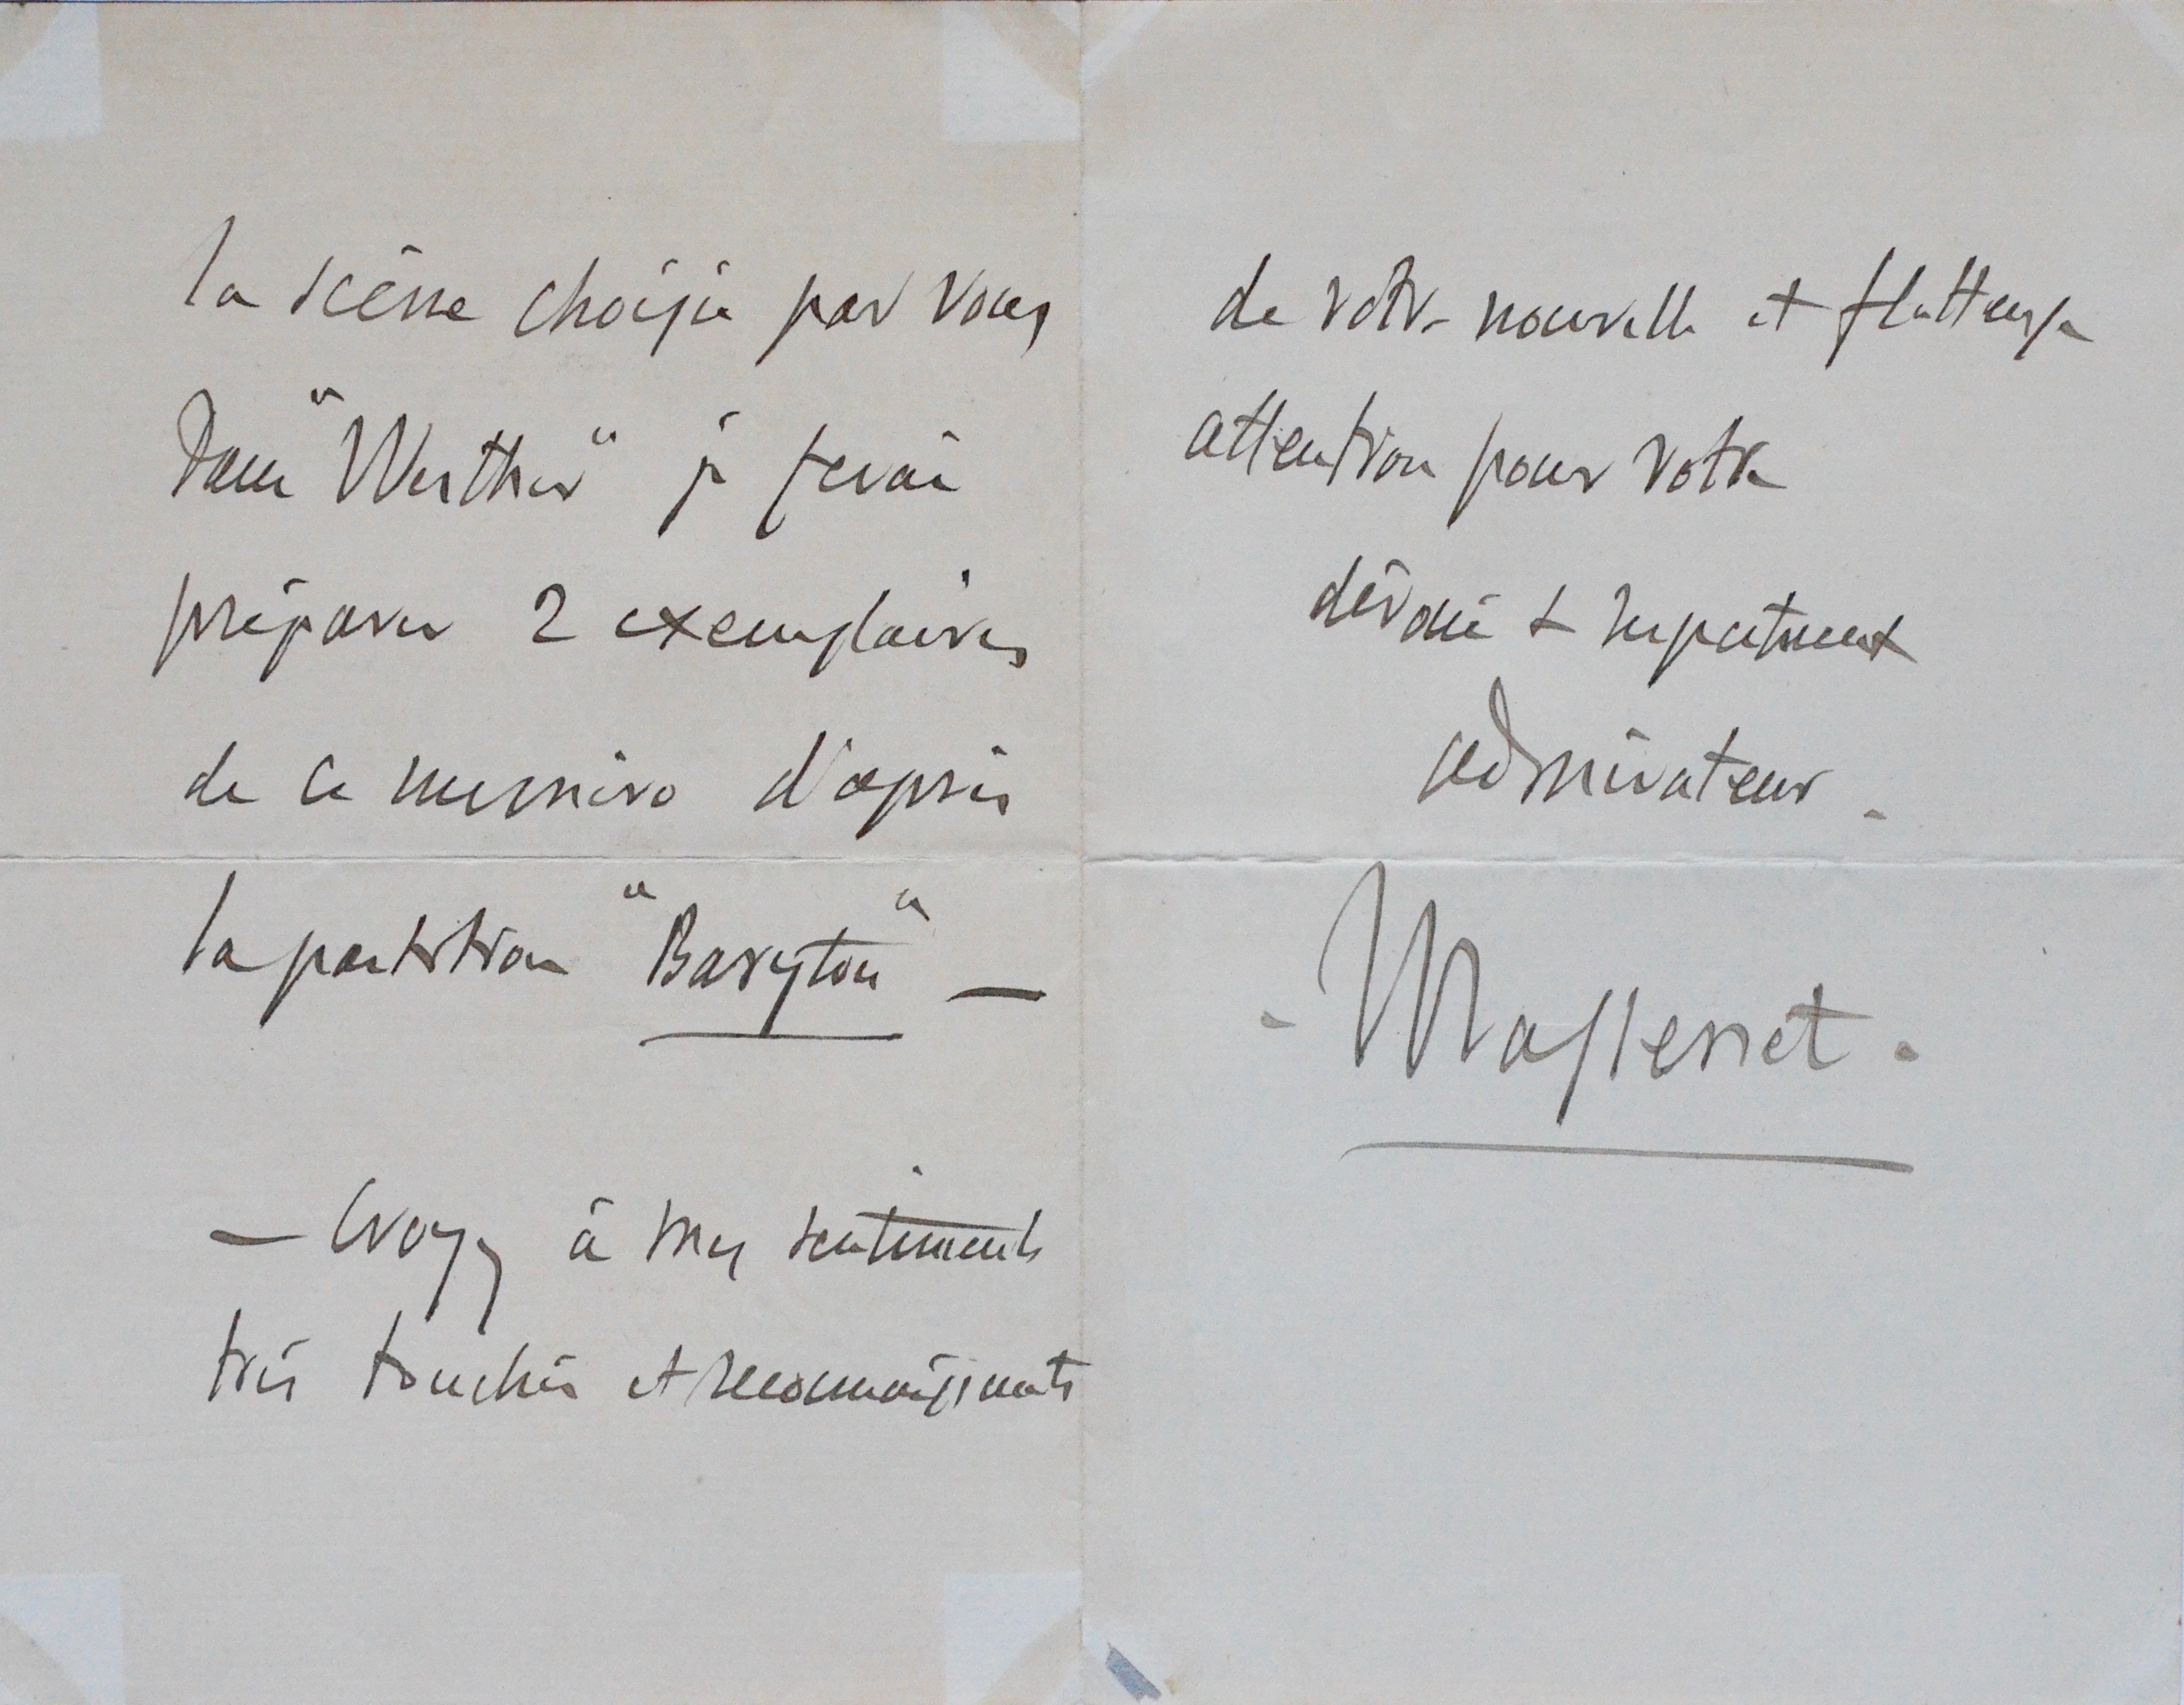 la scène choisie par vous
dans "Werther" je ferai
préparer 2 exemplaires
de ce numéro d'après
la partition "Baryton" —
— Croyez à mes sentiments
très touchés et reconnaissants
de votre nouvelle et flatteuse
attention pour votre
dévoué & respectueux
admirateur.
- Massenet.